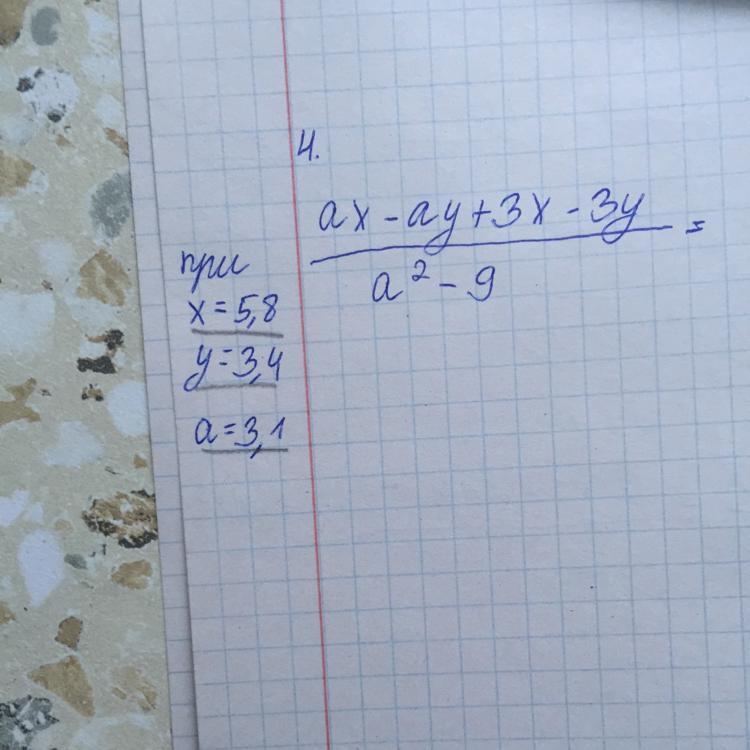 4.
ax - ay + 3x - 3y =
a² - 9
при
x = 5,8
y = 3,4
a = 3,1